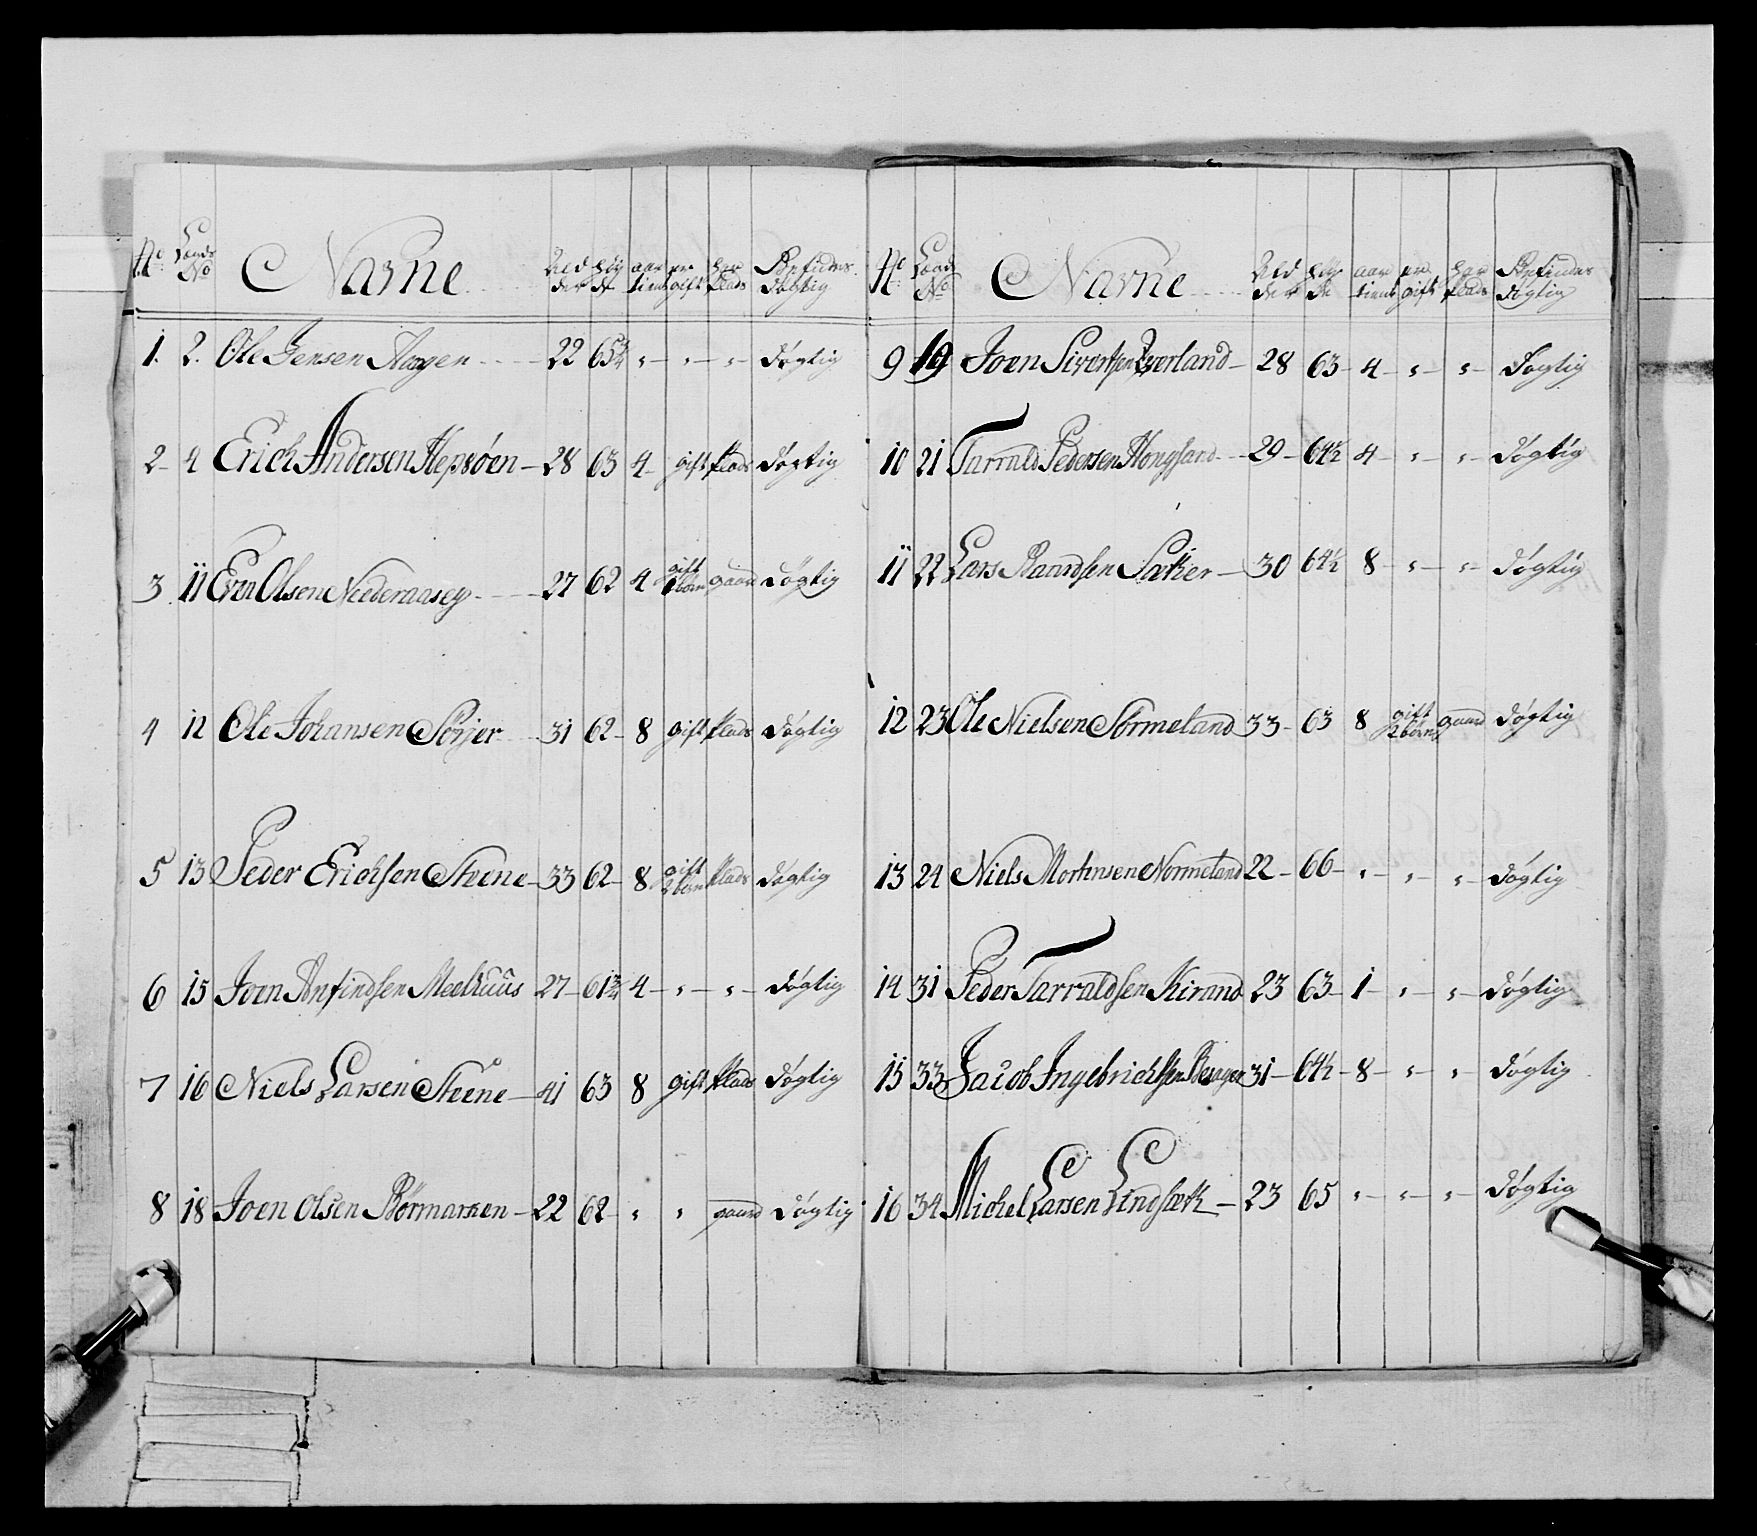 No Lægds No Navne Alder Høyde aar tient er gift har plads Befindes døgtig
1. 2. Ole Jensen Aagen 22 65¾ " " " døgtig
2 4 Erich Andersen Hepsøen 28 63 4 gift plads døgtig
3 11 Even Olsen Nederaasey 27 62 4 gift 1 børn gaard døgtig
4 12 Ole Johansen Sörjer 31 62 8 gift plads døgtig
5 13 Peder Erichsen Steene 33 62 8 gift 2 børn plads døgtig
6 15 Joen Anfindsen Meelhuus 27 61¾ 4 " " døgtig
7 16 Niels Larsen Steene 41 63 8 gift plads døgtig
8 18 Joen Olsen Börmarken 22 62 " " gaard døgtig
No Lægd No Navne Alder Høyde aar tient er gift har plads Befindes døgtig
9 19 Joen Sivertsen Qverland 28 63 4 " " døgtig
10 21 Tarrald Pedersen Hongsand 29 64½ 4 " " døgtig
11 22 Lars Baardsen Sæther 30 64½ 8 " " døgtig
12 23 Ole Nielsen Sörmeland 33 63 8 gift 2 børn gaard døgtig
13 24 Niels Mortensen Normeland 22 66 " " " døgtig
14 31 Peder Tarraldsen Kirand 23 63 1 " " døgtig
15 33 Jacob Ingebrichtsen 31 64½ 8 " " døgtig
16 34 Michel Larsen Lindsæth 23 65 " " " døgtig